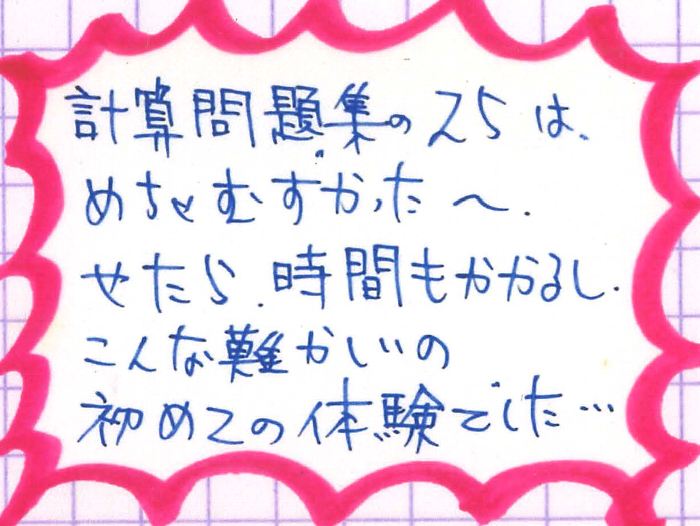 計算問題集の25は、
めちゃむずかった〜.
せたら.時間もかかるし.
こんな難かしいの
初めての体験でした…